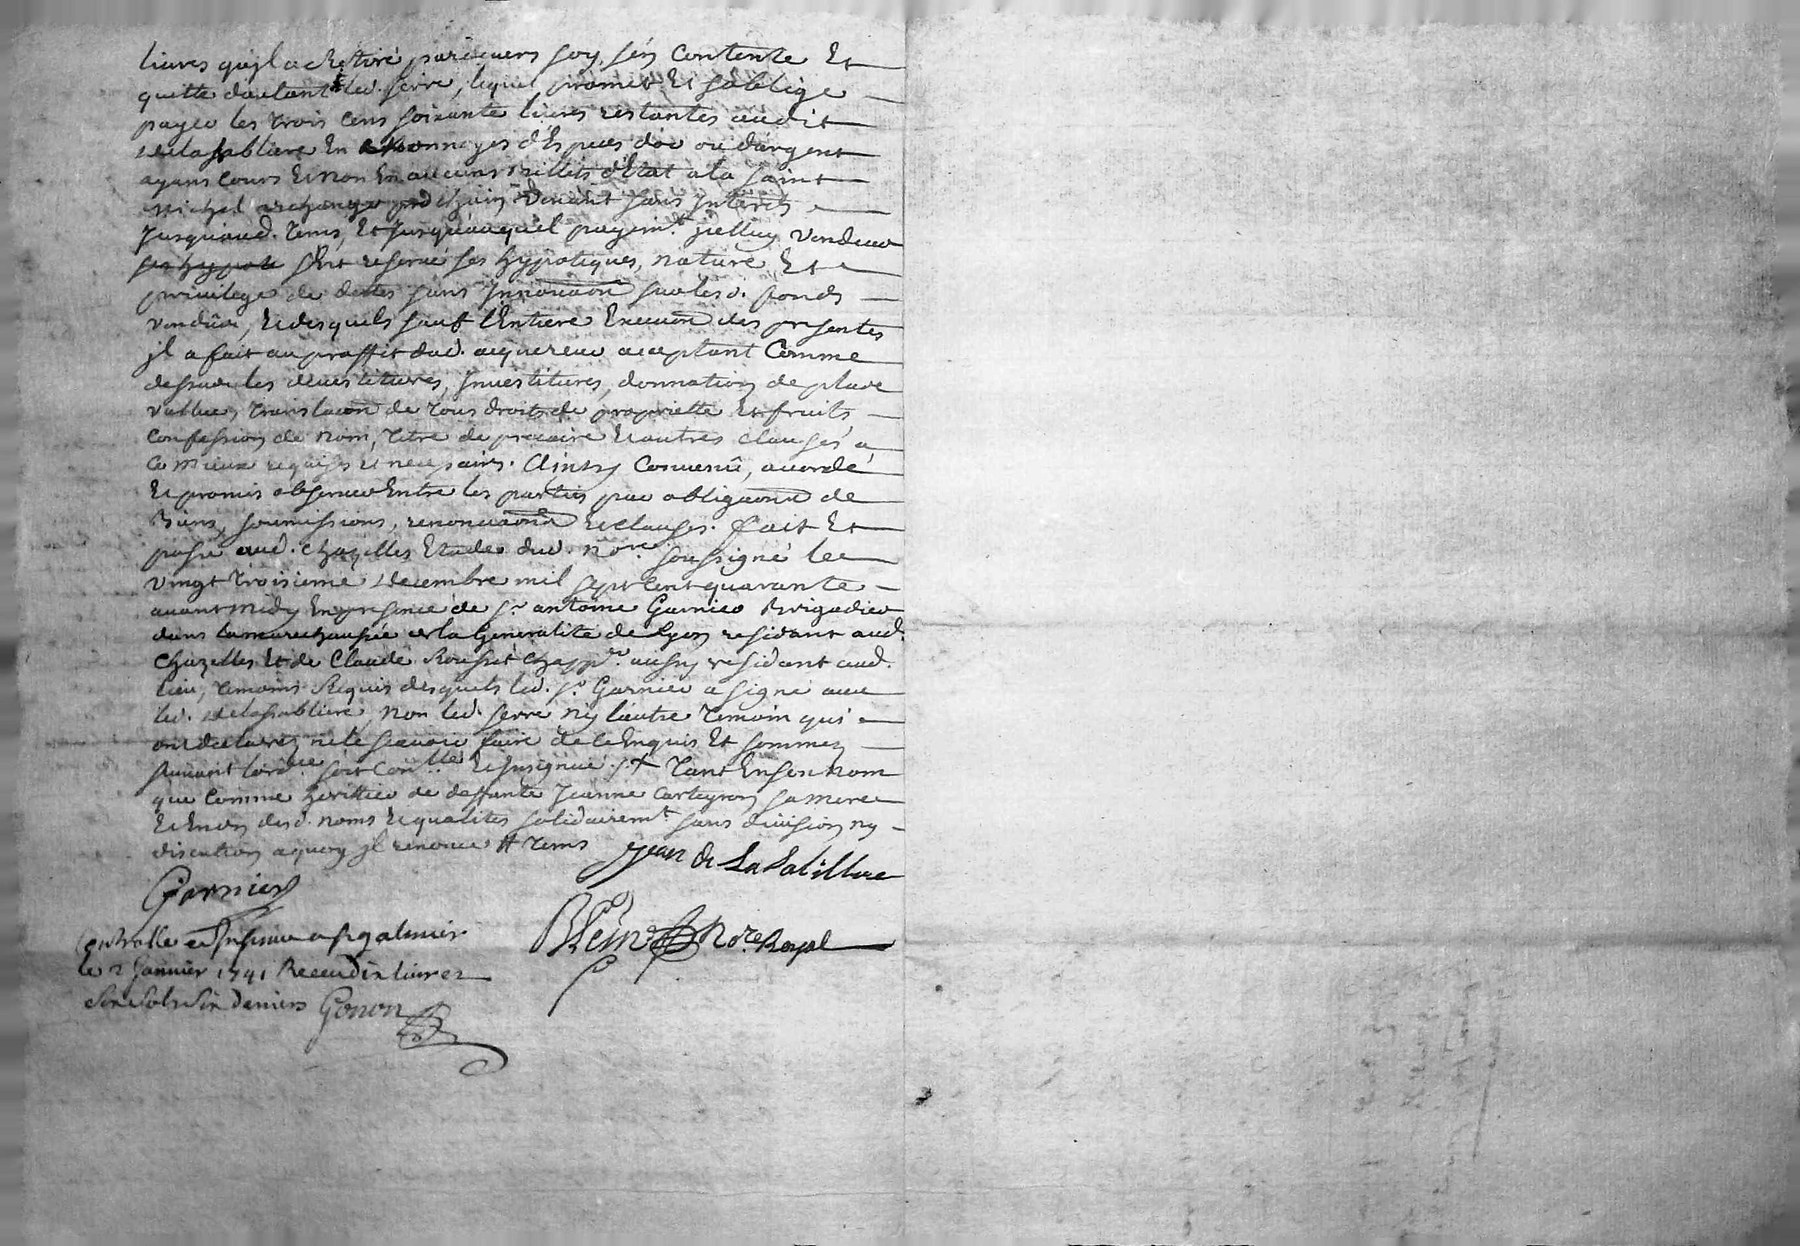 livres qu'jl a Retiré pardevers soy, s'en Contente Et
quitte d'autant led. serre, lequel promet Et s'oblige
payer les trois cens soixante livres restantes audit
delasabliere En monnoyes d'Especes d'or ou d'argent
ayans cours Et non En aucuns billets d'Etat a la saint
Michel prochain venant sans Interets
Jusqu'aud. tems, Et Jusqu'auquel payem.t jcelluy vendeur
ses hypote s'Est reservé ses hypoteques, nature Et
privilege de dettes sans Innovaon sur lesd. fonds
vendûs, Et desquels sauf l'Entiere Execuon des presentes
jl a fait au proffit dud. acquereur acceptant Comme
dessus les devestitures, Investitures, donnation de plus
vallue, translacon de tous droits de proprietté Et fruits
Confession de nom, titre de precaire Et autres clauses a
Ce mieux requises Et necessaires. Ainsy Convenû, accordé
Et promis observer Entre les parties par obligaons de
Biens, soumissions, renonciaons Et clauses. fait Et
passé aud. Chazelles Etude dud. no.re soussigné le
vingt troisieme decembre mil sept cent quarante
avant midy En presence de s.r antoine Garnier Brigadier
dans la marechaussée de la Generalité de Lyon residant aud.
Chazelles Et de Claude Rousset chapp.r aussy residant aud.
lieu, temoins Requis desquels led. s.r Garnier a signé avec
led. delasabliere, Non led. serre ny l'autre temoin qui
ont declarez ne le scavoir faire de ce Enquis Et sommez
suivant l'ord.ce soit Con.llé Et Insignué tant En son nom
que Comme heritier de deffunte Jeanne Carteyron sa mere
Et En desd. noms Et qualités solidairem.t sans division ny
discution a quoy jl renonce # tems Jean de La Sablliere
Garnier
Controllé et Insinué a st galmier Bleine No.re Royal
le 2 Janvier 1741 Receu dix livres
six sols six deniers Gonon